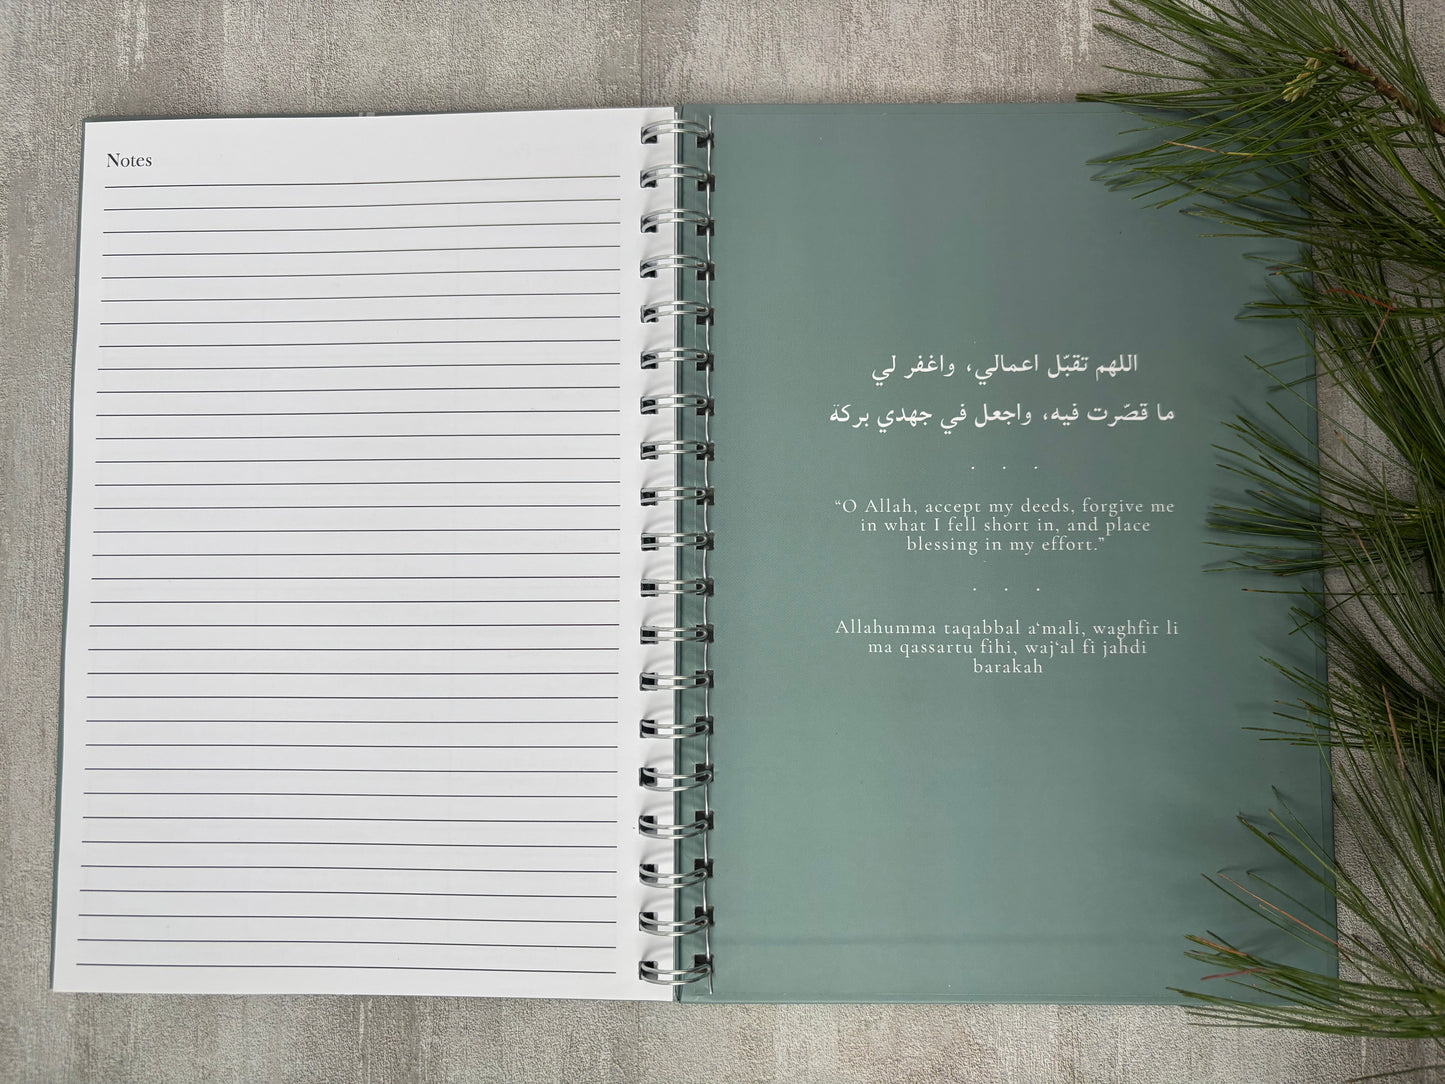 Notes
اللهم تقبّل اعمالي، واغفر لي
ما قصّرت فيه، واجعل في جهدي بركة
. . .
“O Allah, accept my deeds, forgive me
in what I fell short in, and place
blessing in my effort.”
. . .
Allahumma taqabbal a‘mali, waghfir li
ma qassartu fihi, waj‘al fi jahdi
barakah